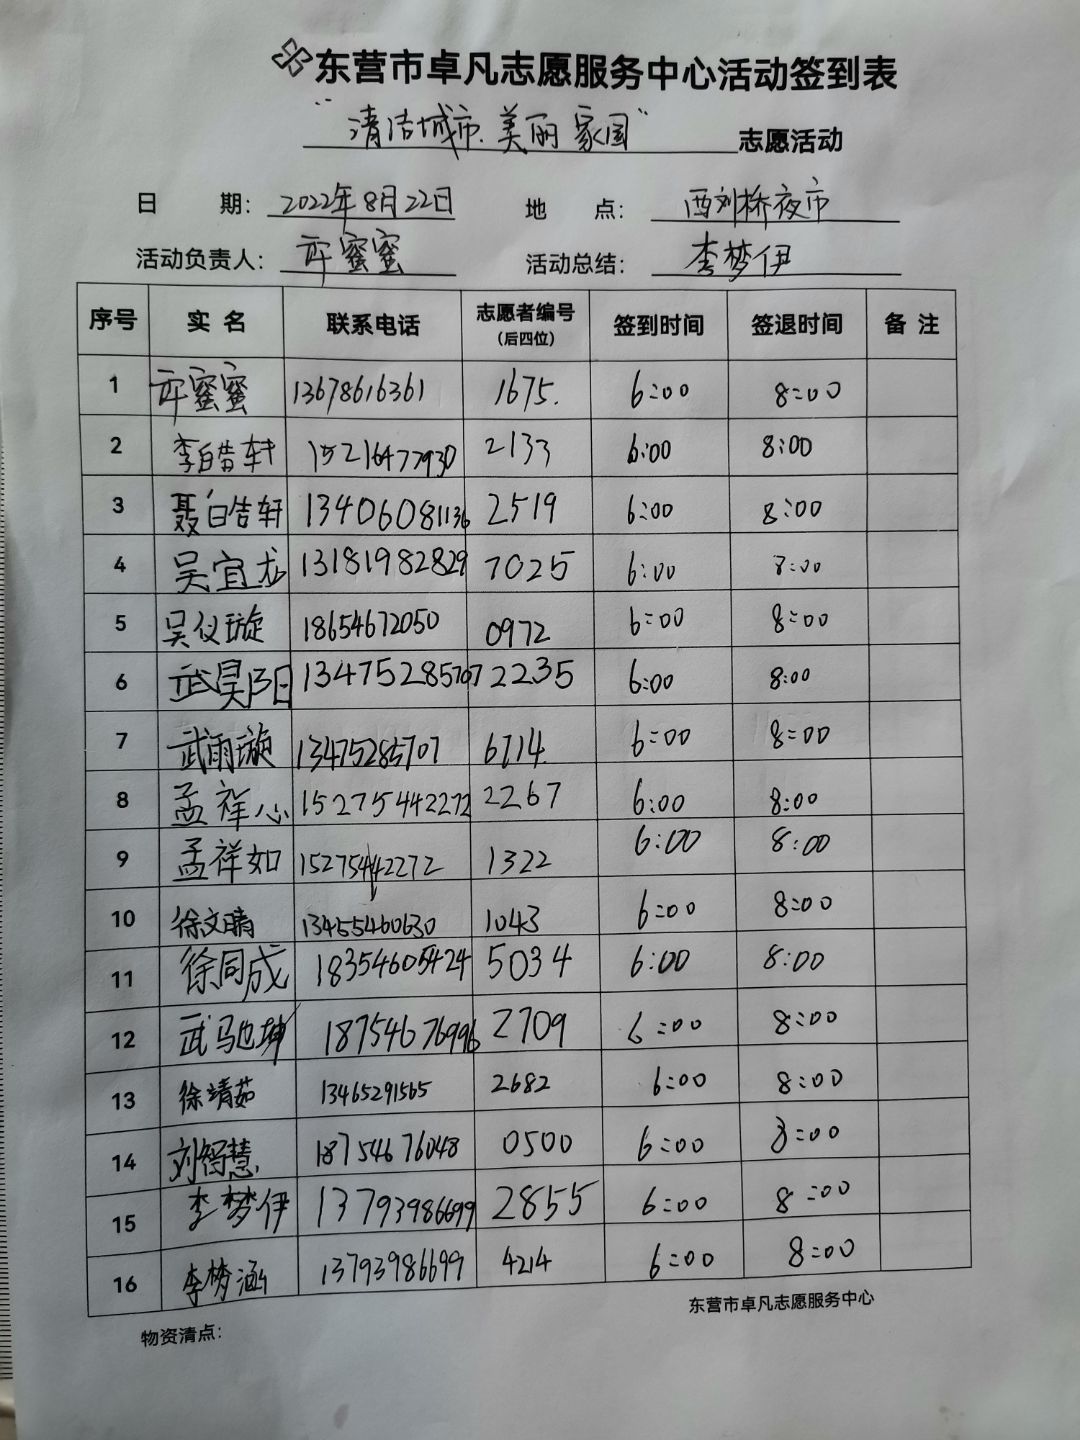 东营市卓凡志愿服务中心活动签到表
“清洁城市、美丽家园”志愿活动
日 期：2022年8月22日 地 点：西刘桥夜市
活动负责人：许蜜蜜 活动总结：李梦伊
序号 实名 联系电话 志愿者编号（后四位） 签到时间 签退时间 备注
1 许蜜蜜 13678616361 1675. 6:00 8:00
2 李皓轩 15216477930 2133 6:00 8:00
3 聂皓轩 13406081136 2519 6:00 8:00
4 吴宜龙 13181982829 7025 6:00 8:00
5 吴仪璇 18654672050 0972 6:00 8:00
6 武昊阳 13475285707 2235 6:00 8:00
7 武雨璇 13475285707 6714 6:00 8:00
8 孟祥心 15275442272 2267 6:00 8:00
9 孟祥如 15275442272 1322 6:00 8:00
10 徐文晴 13455460630 1043 6:00 8:00
11 徐同成 18354605424 5034 6:00 8:00
12 武驰坤 18754676996 2709 6:00 8:00
13 徐靖茹 13465291565 2682 6:00 8:00
14 刘智慧 18754676048 0500 6:00 8:00
15 李梦伊 13793986699 2855 6:00 8:00
16 李梦涵 13793986699 4214 6:00 8:00
东营市卓凡志愿服务中心
物资清点：